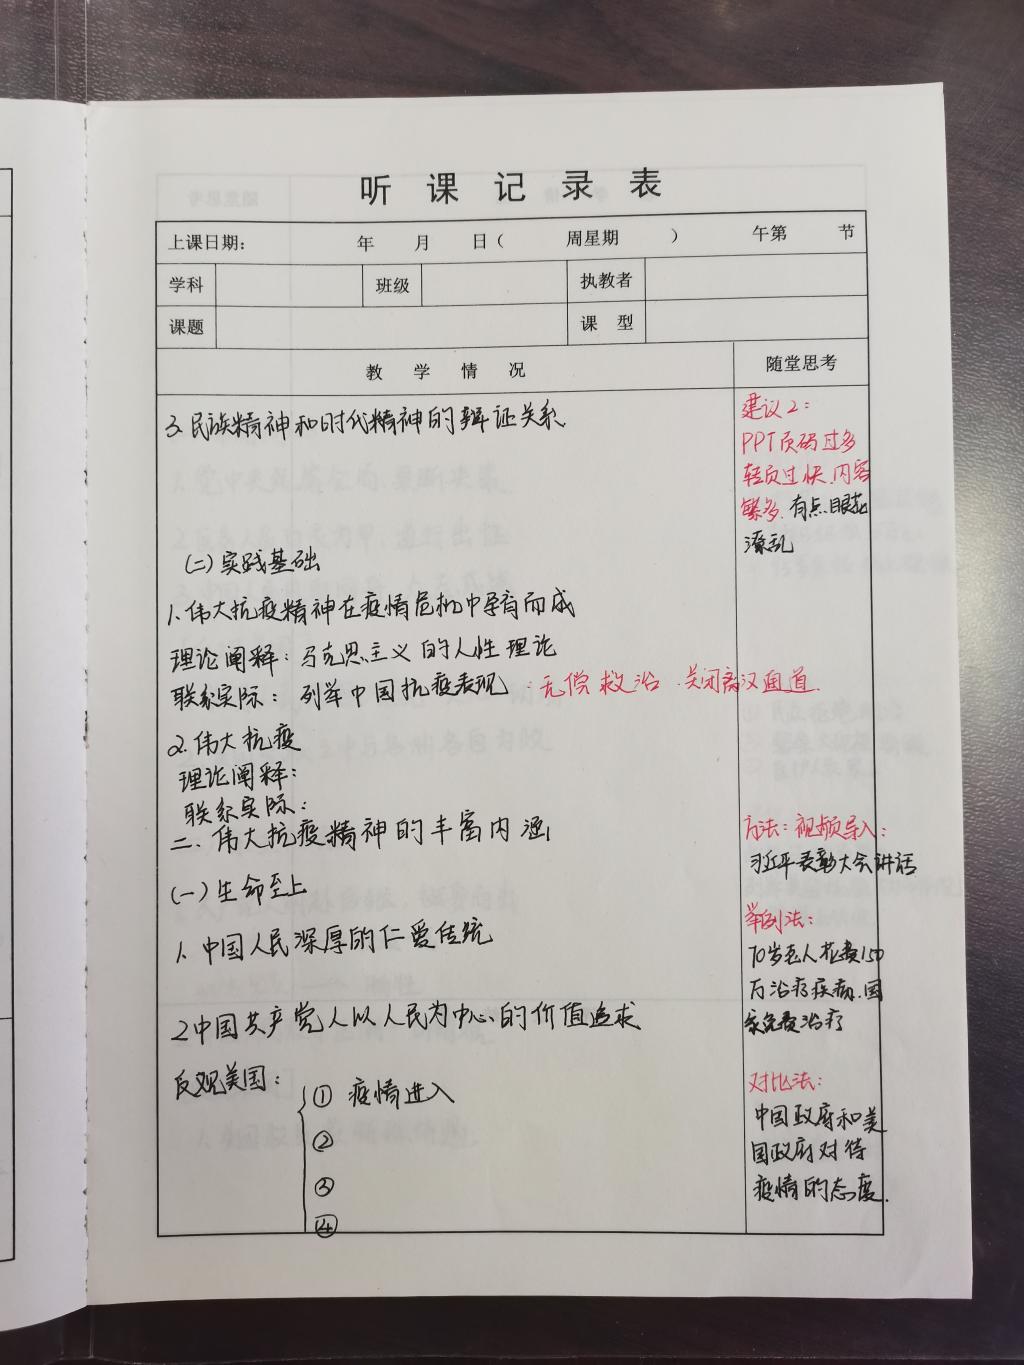 听 课 记 录 表
上课日期: 年 月 日( 周星期 ) 午第 节
学科 班级 执教者
课题 课 型
教 学 情 况 随堂思考
3.民族精神和时代精神的辩证关系.
(二)实践基础
1.伟大抗疫精神在疫情危机中孕育而成
理论阐释:马克思主义的人性理论
联系实际: 列举中国抗疫表现:无偿救治.关闭离汉通道.
2.伟大抗疫
理论阐释:
联系实际:
二、伟大抗疫精神的丰富内涵
(一)生命至上
1.中国人民深厚的仁爱传统
2.中国共产党人以人民为中心的价值追求
反观美国:
① 疫情进入
②
③
④
建议2:
PPT页码过多
轻页过快.内容
繁多.有点眼花
潦乱
方法:视频导入:
习近平表彰大会讲话
举例法:
70岁老人花费150
万治疗疾病.国
家免费治疗
对比法:
中国政府和美
国政府对待
疫情的态度.